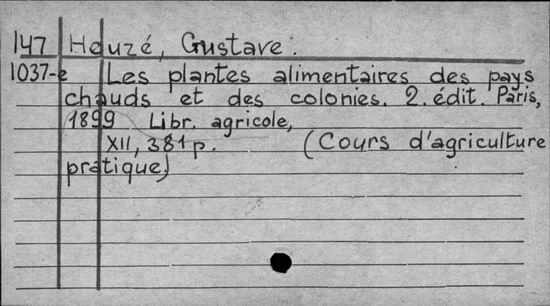 147 Heuzé, Gustave.
1037-e Les plantes alimentaires des pays
chauds et des colonies. 2. édit. Paris,
1899 Libr. agricole,
XII, 381 p. (Cours d'agriculture
pratique)